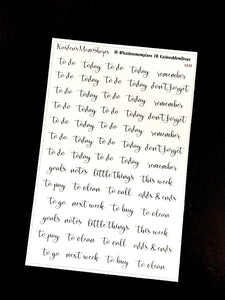 KaidensMomShops
IG @kaidensmomplans FB KaidensMomShops
to do today to do today remember
to do today to do today don't forget
to do today to do today remember
to do today to do today don't forget
to do today to do today remember
to do today to do today don't forget
to do today to do today remember
goals notes little things this week
to pay to clean to call odds & ends
to go next week to buy to clean
goals notes little things this week
to pay to clean to call odds & ends
to go next week to buy to clean